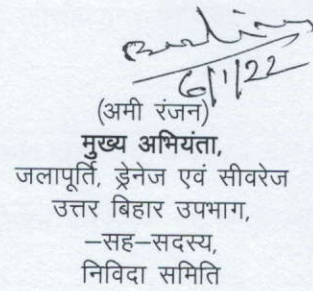 6/1/22
(अमी रंजन)
मुख्य अभियंता,
जलापूर्ति, ड्रेनेज एवं सीवरेज
उत्तर बिहार उपभाग,
–सह–सदस्य,
निविदा समिति